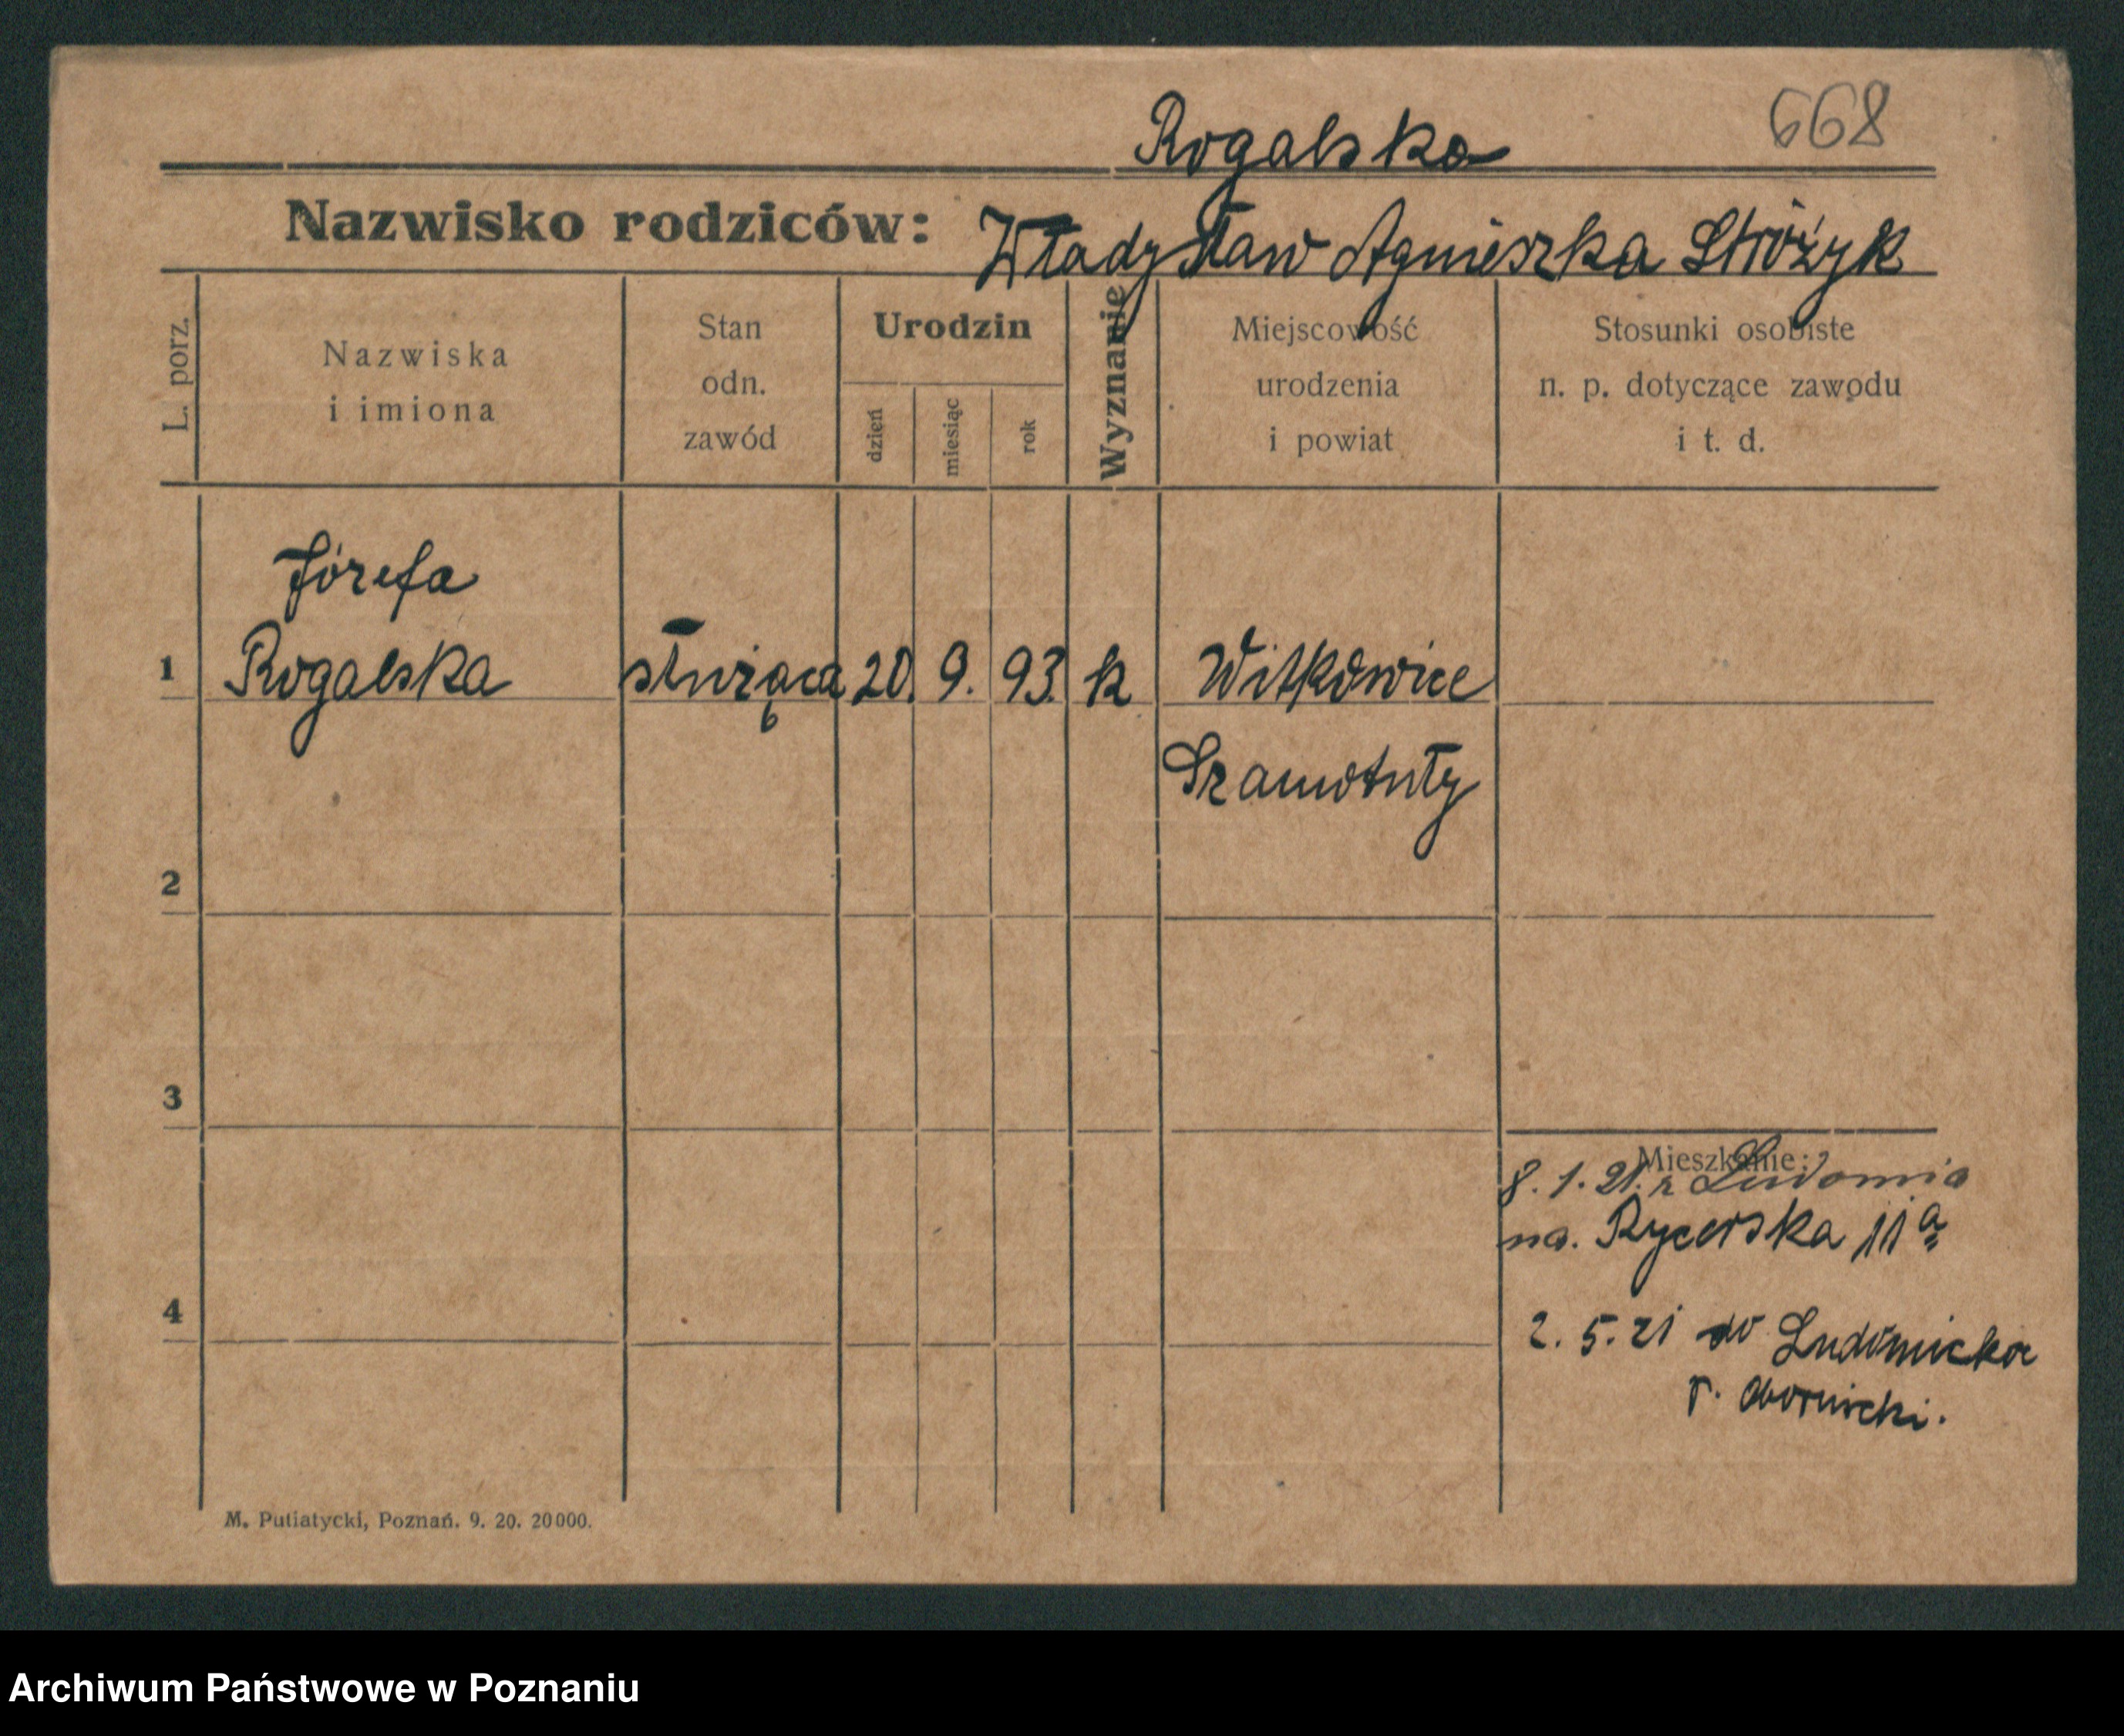 Rogalska
668
Nazwisko rodziców: Władysław Agnieszka Stróżyk
L. porz.
Nazwiska
i imiona
Stan
odn.
zawód
Urodzin
dzień
miesiąc
rok
Wyznanie
Miejscowość
urodzenia
i powiat
Stosunki osobiste
n. p. dotyczące zawodu
i t. d.
Józefa
1 Rogalska służąca 20. 9. 93. k Witkowice
Szamotuły
2
3
Mieszkanie:
8. 1. 21. z Ludomia
na. Rycerska 11a
4
2. 5. 21 do Ludomicka
p. obornicki.
M. Putiatycki, Poznań. 9. 20. 20000.
Archiwum Państwowe w Poznaniu